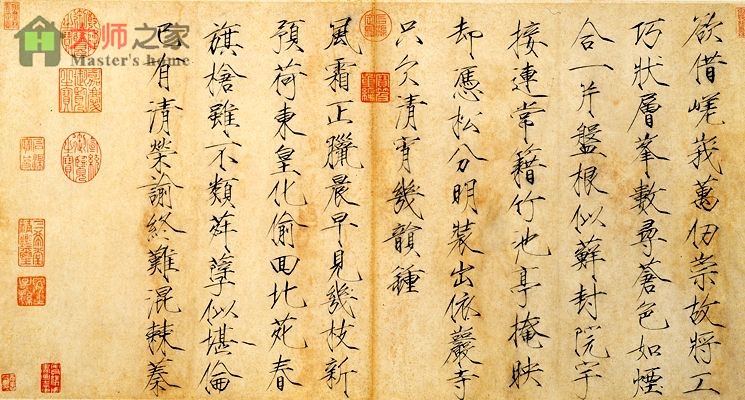 大师之家
Master's home
欲借嵯峩萬仞崇故將工
巧狀層峯數尋蒼色如煙
合一片盤根似蘚封院宇
接連常籍竹池亭掩映
却憑松分明裝出依巖寺
只欠清宵幾韻鍾
風霜正臘晨早見幾枝新
預荷東皇化偷囬北苑春
旗槍雖不類荈孽似堪倫
已有清榮諭終難混棘蓁